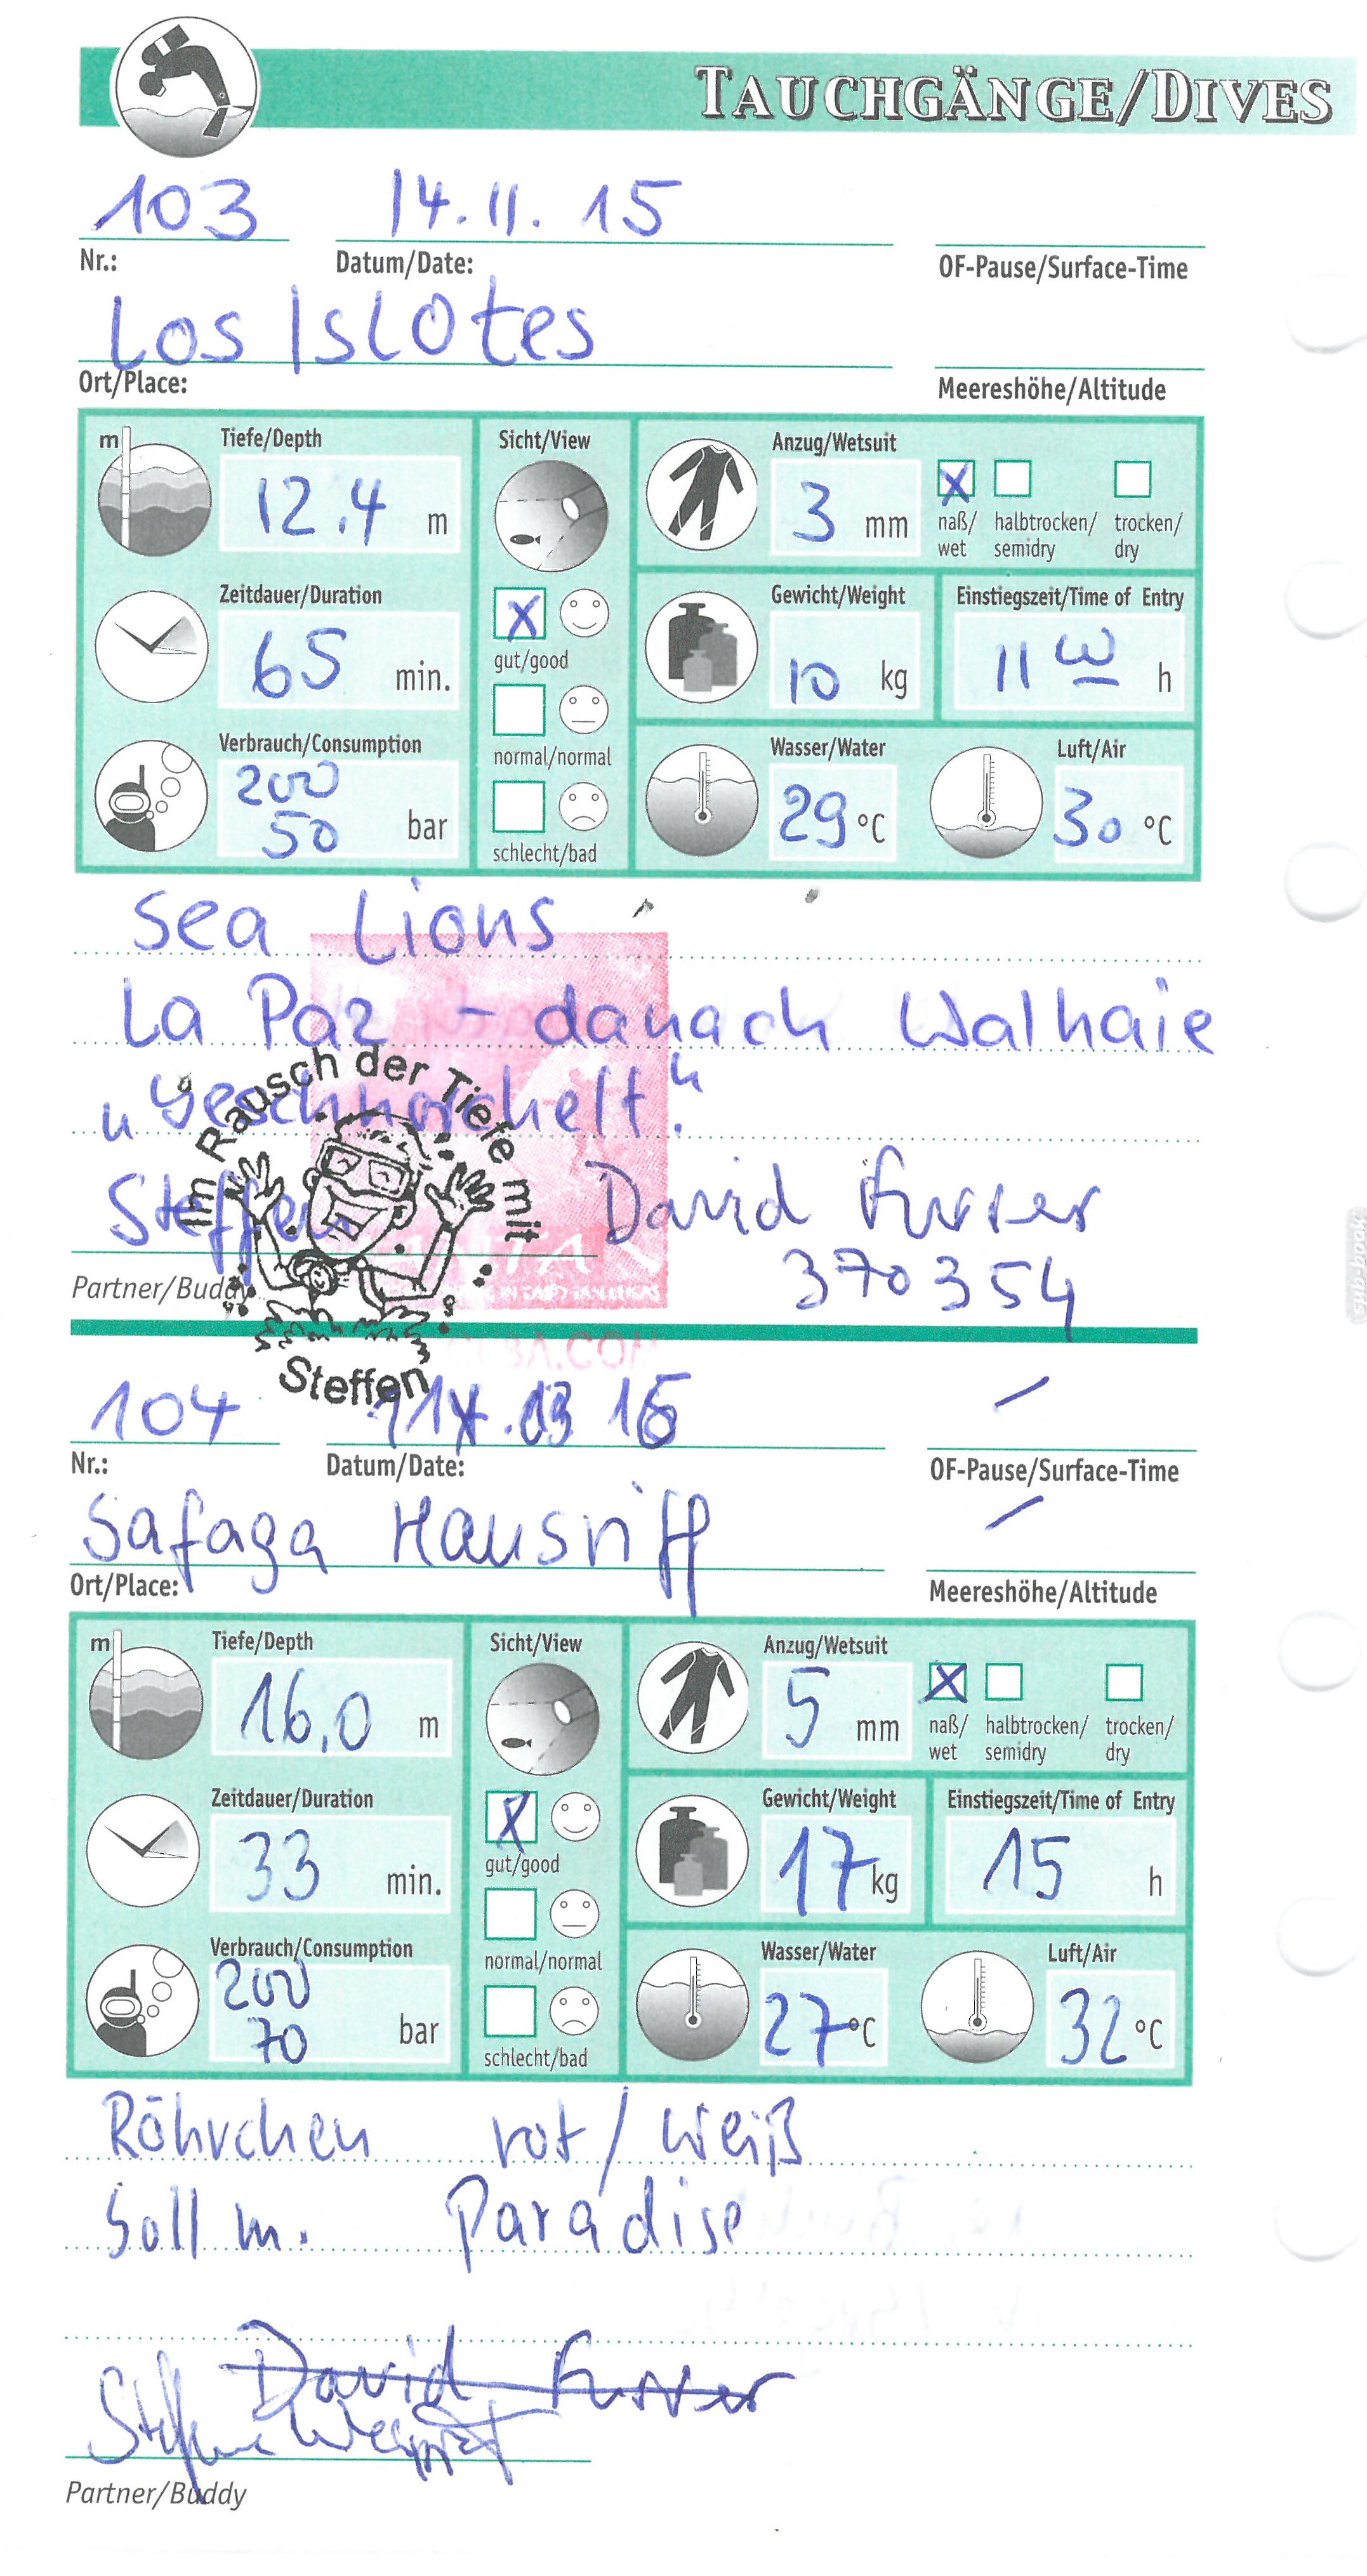 TAUCHGÄNGE/DIVES
103 14.11.15
Nr.: Datum/Date: OF-Pause/Surface-Time
Los Islotes
Ort/Place: Meereshöhe/Altitude
m Tiefe/Depth Sicht/View Anzug/Wetsuit
12.4 m 3 mm X
naß/ halbtrocken/ trocken/
wet semidry dry
Zeitdauer/Duration Gewicht/Weight Einstiegszeit/Time of Entry
65 min. X 10 kg 11 00 h
gut/good
Verbrauch/Consumption normal/normal Wasser/Water Luft/Air
200
50 bar 29 °C 30 °C
schlecht/bad
Sea Lions
La Paz - danach Walhaie
"geschnorchelt."
Im Rausch der Tiefe mit
Steffen David Furrer
370354
Partner/Buddy
Steffen
BA.COM
104 03 16
Nr.: Datum/Date: OF-Pause/Surface-Time
Safaga Hausriff
Ort/Place: Meereshöhe/Altitude
m Tiefe/Depth Sicht/View Anzug/Wetsuit
16,0 m 5 mm X
naß/ halbtrocken/ trocken/
wet semidry dry
Zeitdauer/Duration Gewicht/Weight Einstiegszeit/Time of Entry
33 min. X 17 kg 15 h
gut/good
Verbrauch/Consumption normal/normal Wasser/Water Luft/Air
200
70 bar 27 °C 32 °C
schlecht/bad
Röhrchen rot/weiß
Soll m. Paradise
David Furrer
Partner/Buddy
sub-book